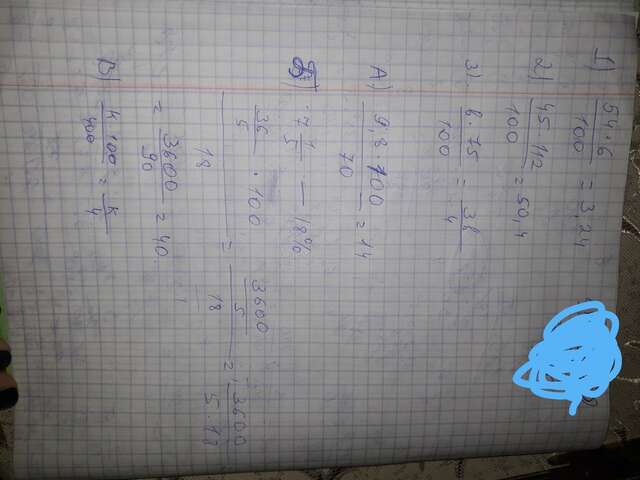 1) 54·6/100 = 3,24
2) 45·112/100 = 50,4
3) b·75/100 = 3b/4
А) 9,8·100/70 = 14
Б) 7 1/5 — 18%
36/5 · 100 / 18 = 3600/5 / 18 = 3600/5·18
= 3600/90 = 40
В) k·100/400 = k/4